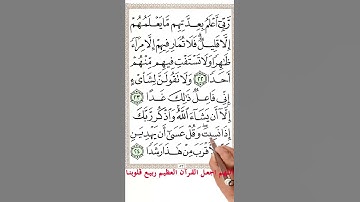 رَبِّىٓ أَعْلَمُ بِعِدَّتِهِم مَّا يَعْلَمُهُمْ
إِلَّا قَلِيلٌ ۗ فَلَا تُمَارِ فِيهِمْ إِلَّا مِرَآءً
ظَٰهِرًا وَلَا تَسْتَفْتِ فِيهِم مِّنْهُمْ
أَحَدًا ٢٢ وَلَا تَقُولَنَّ لِشَا۟ىْءٍ
إِنِّى فَاعِلٌ ذَٰلِكَ غَدًا ٢٣
إِلَّآ أَن يَشَآءَ ٱللَّهُ ۚ وَٱذْكُر رَّبَّكَ
إِذَا نَسِيتَ وَقُلْ عَسَىٰٓ أَن يَهْدِيَنِ
لِأَقْرَبَ مِنْ هَٰذَا رَشَدًا ٢٤
اللهم اجعل القرآن العظيم ربيع قلوبنا